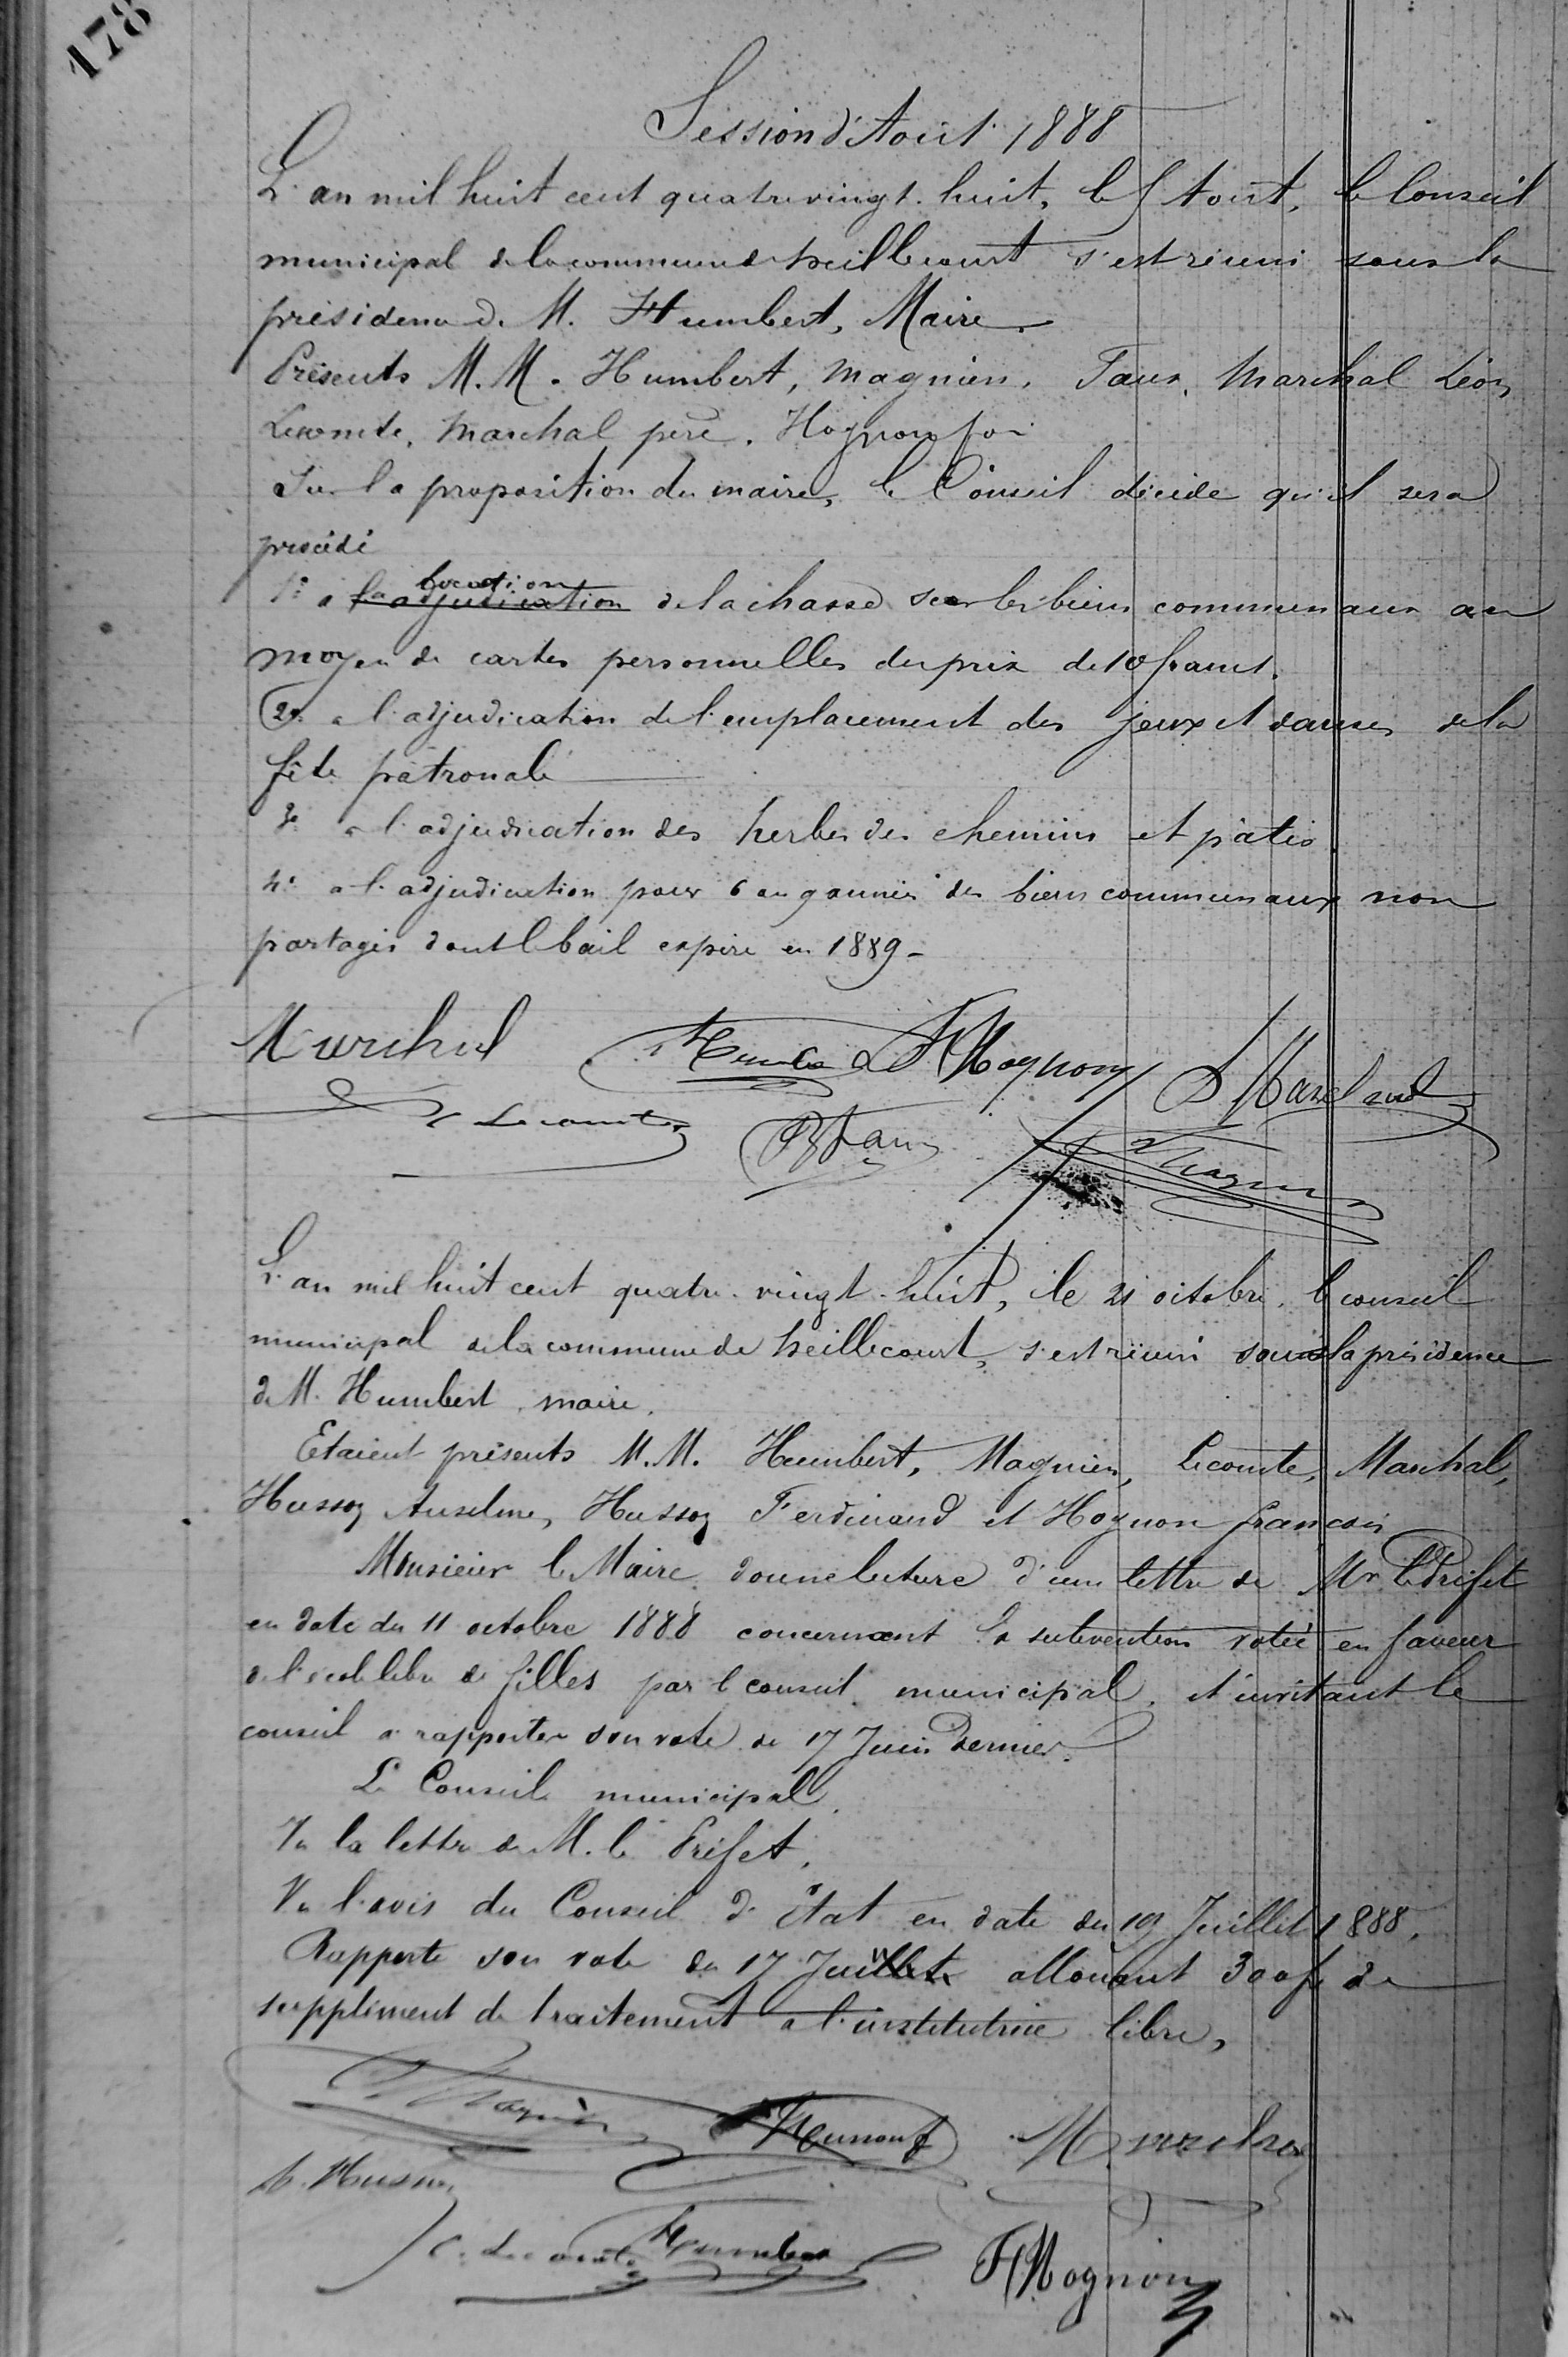 178
Session d'Août 1888
L'an mil huit cent quatre vingt huit, le Août, le Conseil
municipal de la commune de heillecourt s'est réuni sous la
présidence de M. Humbert, Maire
Présents M.M. Humbert, Magnien, Faux, Marchal Léon
Lecomte, Marchal père, Hognon foi
Sur la proposition du maire, le Conseil décide qu'il sera
procédé
location
1° a la adjudication de la chasse sur les biens communaux au
moyen de cartes personnelles du prix de 10 francs.
2° a l'adjudication de l'emplacement des jeux et danses de la
fête patronale
3° a l'adjudication des herbes des chemins et pâtis.
4° a l'adjudication pour 6 ou 9 années des biens communaux non
partagés dont le bail expire en 1889 -
Marchal Humbert F Hognon L Marchal
Lecomte Faux Magnien
L'an mil huit cent quatre-vingt-huit, le 21 octobre, le conseil
municipal de la commune de heillecourt, s'est réuni sous la présidence
de M. Humbert, maire.
Etaient présents M.M. Humbert, Magnien, Lecomte, Marchal,
Husson Anselme, Husson Ferdinand et Hognon françois
Monsieur le Maire donne lecture d'une lettre de Mr le Préfet
en date du 11 octobre 1888 concernant la subvention votée en faveur
de l'école libre de filles par le conseil municipal, et invitant le
conseil a rapporter son vote de 17 Juin dernier.
Le Conseil municipal,
Vu la lettre de M. le Préfet,
Vu l'avis du Conseil d'Etat en date du 19 Juillet 1888,
Rapporte son vote du 17 Juillet allouant 300 f de
supplément de traitement a l'institutrice libre,
Magnien Husson f Marchal
A. Husson
C. Lecomte Humbert F Hognon